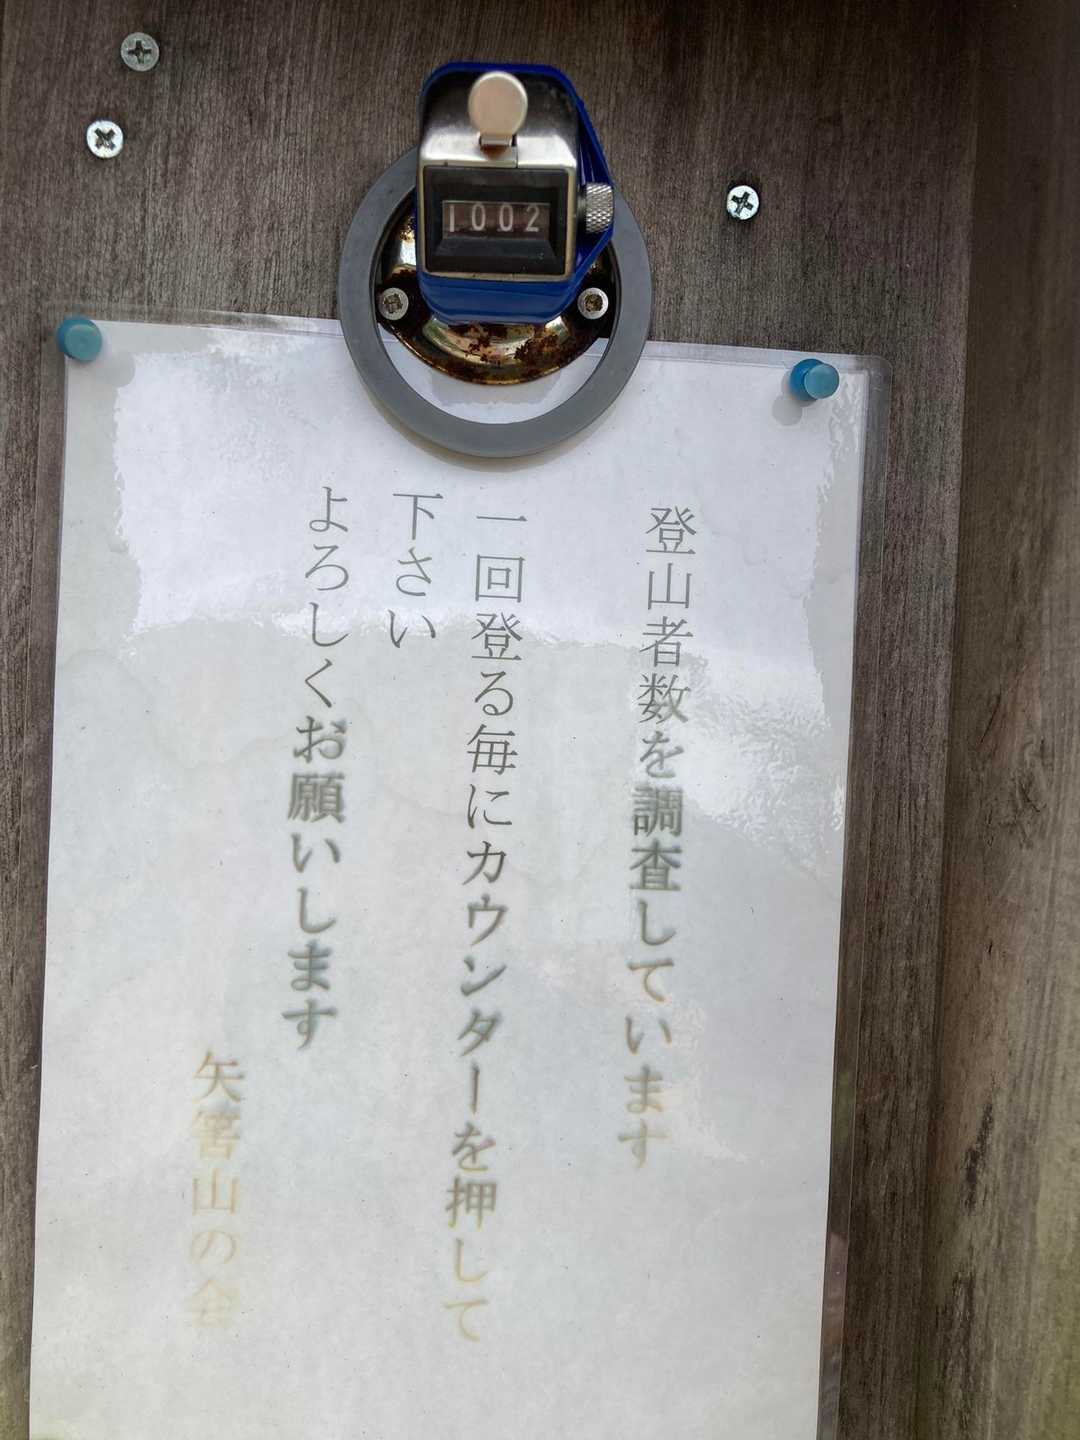 1002
登山者数を調査しています
一回登る毎にカウンターを押して
下さい
よろしくお願いします
矢筈山の会